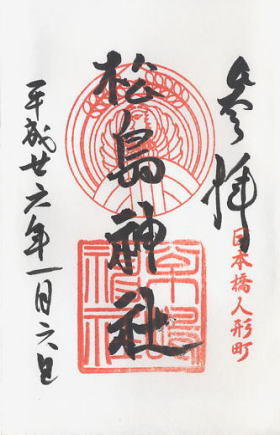 参拝
日本橋人形町
松島神社
平成廿六年一月六日